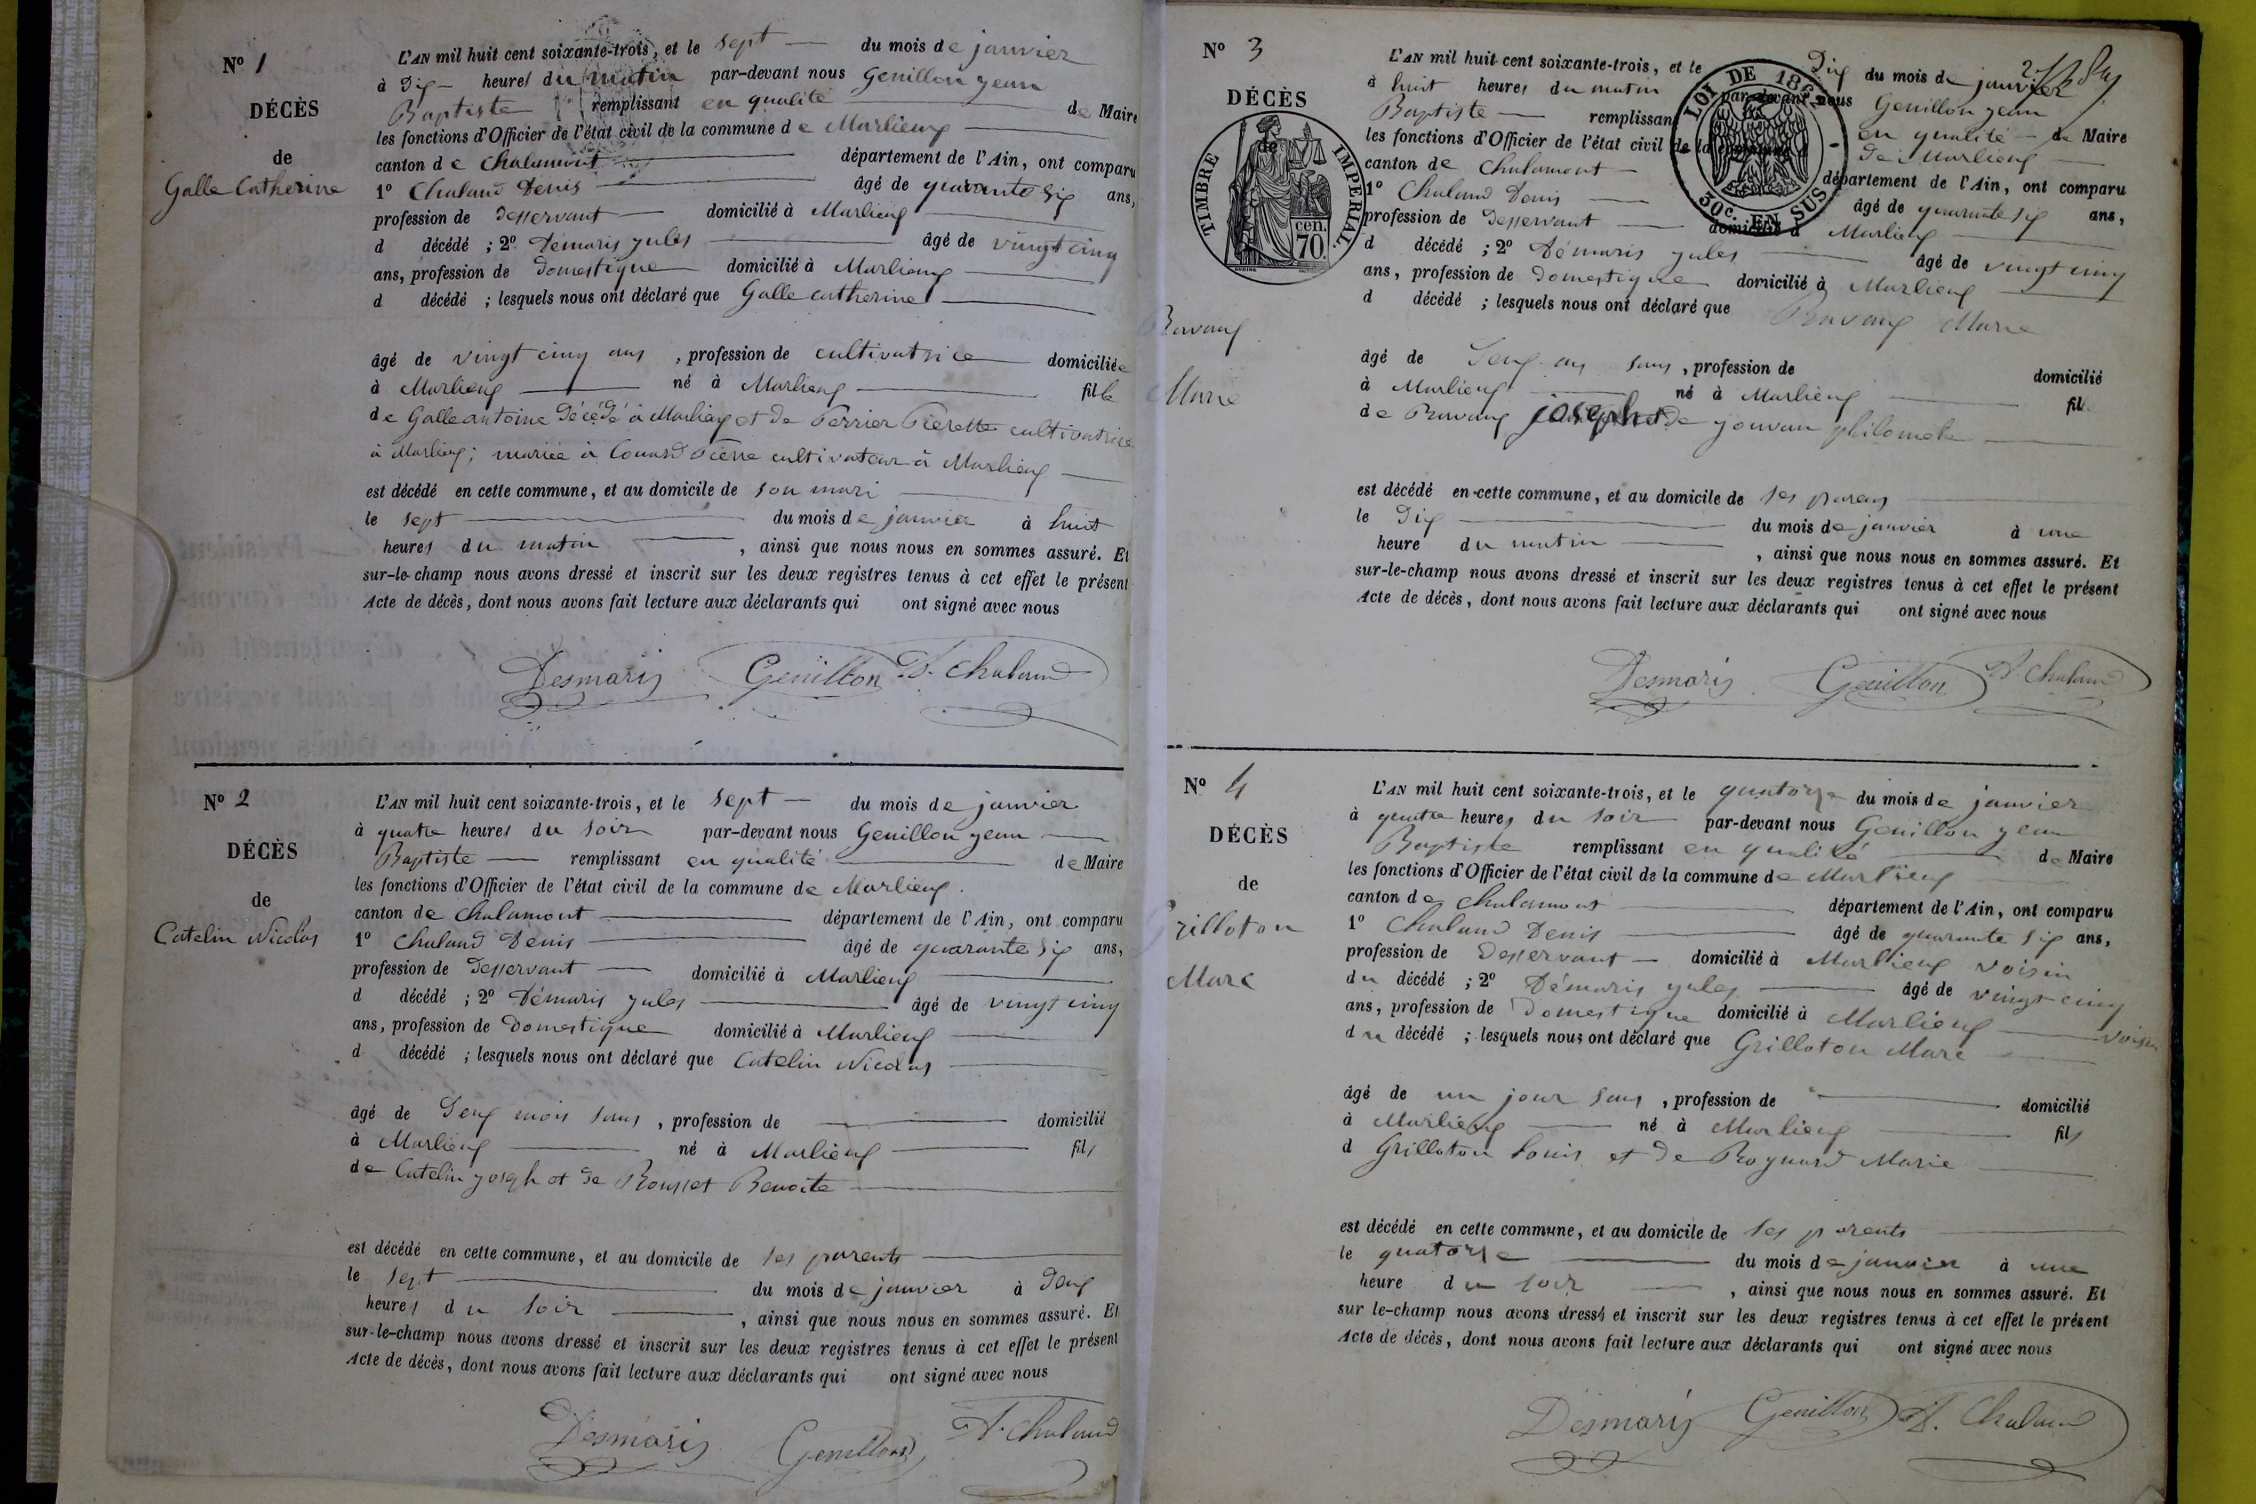 N° 1
DÉCÈS
de
Galle Catherine
L'AN mil huit cent soixante-trois, et le sept du mois de janvier
à dix heures du matin par-devant nous Genillon jean
Baptiste remplissant en qualité de Maire
les fonctions d'Officier de l'état civil de la commune de Marlieux
canton de Chalamont département de l'Ain, ont comparu
1° Chaland Denis âgé de quarante six ans,
profession de desservant domicilié à Marlieux
d décédé ; 2° Démaris jules âgé de vingt cinq
ans, profession de Domestique domicilié à Marlieux
d décédé ; lesquels nous ont déclaré que Galle catherine
âgé de vingt cinq ans , profession de cultivatrice domiciliée
à Marlieux né à Marlieux fille
de Galle antoine décédé à Marlieux et de Perrier Pierette cultivatrice
à Marlieux ; mariée à Couard Pierre cultivateur à Marlieux
est décédé en cette commune, et au domicile de son mari
le sept du mois de janvier à huit
heures du matin , ainsi que nous nous en sommes assuré. Et
sur-le-champ nous avons dressé et inscrit sur les deux registres tenus à cet effet le présent
Acte de décès, dont nous avons fait lecture aux déclarants qui ont signé avec nous
Desmaris Genillon D. Chaland
N° 2
DÉCÈS
de
Catelin Nicolas
L'AN mil huit cent soixante-trois, et le sept du mois de janvier
à quatre heures du soir par-devant nous Genillon jean
Baptiste remplissant en qualité de Maire
les fonctions d'Officier de l'état civil de la commune de Marlieux.
canton de Chalamont département de l'Ain, ont comparu
1° Chaland Denis âgé de quarante six ans,
profession de desservant domicilié à Marlieux
d décédé ; 2° Démaris jules âgé de vingt cinq
ans, profession de Domestique domicilié à Marlieux
d décédé ; lesquels nous ont déclaré que Catelin Nicolas
âgé de deux mois sans , profession de domicilié
à Marlieux né à Marlieux fils
de Catelin joseph et de Rousset Benoite
est décédé en cette commune, et au domicile de ses parents
le sept du mois de janvier à deux
heures du soir , ainsi que nous nous en sommes assuré. Et
sur-le-champ nous avons dressé et inscrit sur les deux registres tenus à cet effet le présent
Acte de décès, dont nous avons fait lecture aux déclarants qui ont signé avec nous
Desmaris Genillon D. Chaland
N° 3
DÉCÈS
de
TIMBRE IMPÉRIAL.
cen. 70.
LOI DE 1862
30c. EN SUS
Ravaux
Marie
L'AN mil huit cent soixante-trois, et le Dix du mois de janvier
à huit heures du matin par-devant nous Genillon jean
Baptiste remplissant en qualité de Maire
les fonctions d'Officier de l'état civil de la commune de Marlieux
canton de Chalamont département de l'Ain, ont comparu
1° Chaland Denis âgé de quarante six ans,
profession de desservant domicilié à Marlieux
d décédé ; 2° Démaris jules âgé de vingt cinq
ans, profession de Domestique domicilié à Marlieux
d décédé ; lesquels nous ont déclaré que Ravaux Marie
âgé de deux ans sans , profession de domicilié
à Marlieux né à Marlieux fil
de Ravaux joseph et de jouvan philomele
est décédé en cette commune, et au domicile de ses parens
le dix du mois de janvier à une
heure du matin , ainsi que nous nous en sommes assuré. Et
sur-le-champ nous avons dressé et inscrit sur les deux registres tenus à cet effet le présent
Acte de décès, dont nous avons fait lecture aux déclarants qui ont signé avec nous
Desmaris Genillon D. Chaland
N° 4
DÉCÈS
de
Grilloton
Marc
L'AN mil huit cent soixante-trois, et le quatorze du mois de janvier
à quatre heures du soir par-devant nous Genillon jean
Baptiste remplissant en qualité de Maire
les fonctions d'Officier de l'état civil de la commune de Marlieux
canton de Chalamont département de l'Ain, ont comparu
1° Chaland Denis âgé de quarante six ans,
profession de desservant domicilié à Marlieux voisin
du décédé ; 2° Démaris jules âgé de vingt cinq
ans, profession de Domestique domicilié à Marlieux voisin
du décédé ; lesquels nous ont déclaré que Grilloton Marc
âgé de un jour sans , profession de domicilié
à Marlieux né à Marlieux fils
d Grilloton Louis et de Roynard Marie
est décédé en cette commune, et au domicile de ses parents
le quatorze du mois de janvier à une
heure du soir , ainsi que nous nous en sommes assuré. Et
sur le-champ nous avons dressé et inscrit sur les deux registres tenus à cet effet le présent
Acte de décès, dont nous avons fait lecture aux déclarants qui ont signé avec nous
Desmaris Genillon D. Chaland